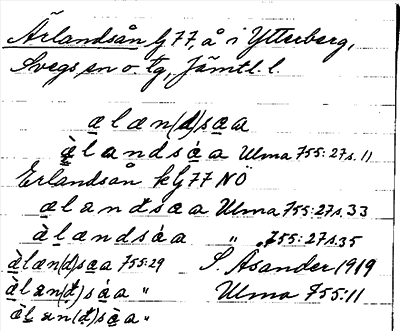 Ärlandsån Gj 77, å i Ytterberg,
Svegs sn o. tg, Jämtl. l.
ælæn(d)sæa
ὰlandsàa Ulma 755:27 s. 11
Erlandsån kGj 77 NÖ
ælandsæa Ulma 755:27 s. 33
àlændsáa " 755:27 s. 35
ælæn(d)sæa 755:29 S. Åsander 1919
àlæn(d)sáa " Ulma 755:11
àlæn(d)sàa "